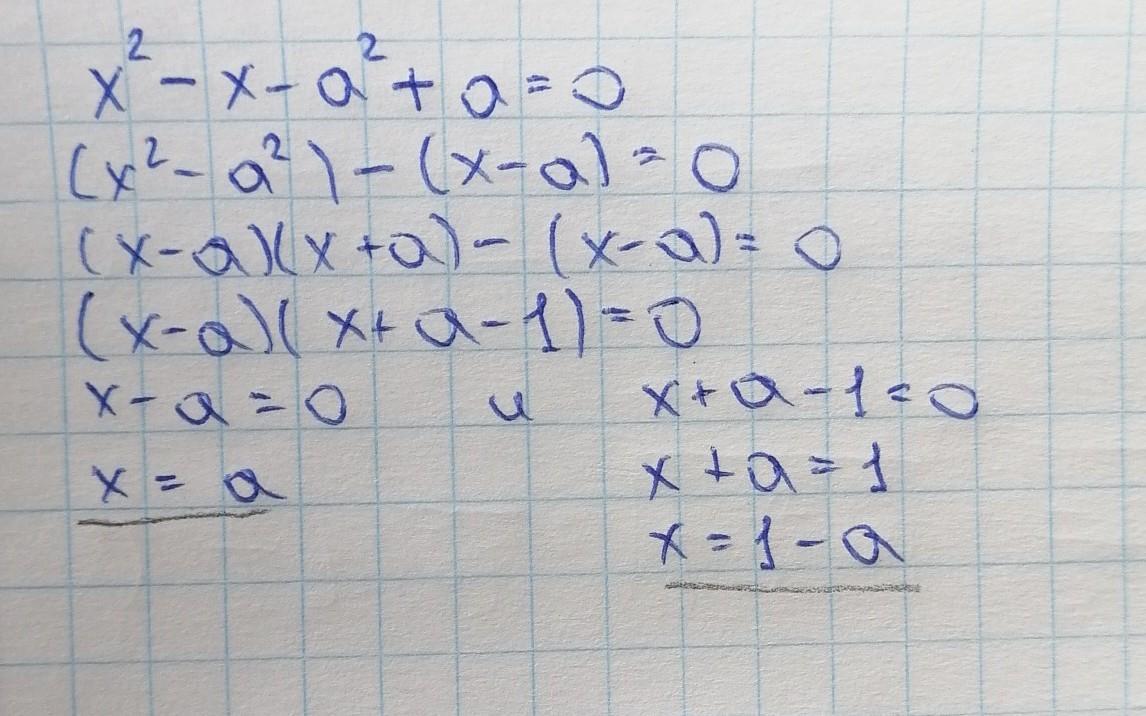 x² - x - a² + a = 0
(x² - a²) - (x - a) = 0
(x - a)(x + a) - (x - a) = 0
(x - a)(x + a - 1) = 0
x - a = 0 и x + a - 1 = 0
x = a x + a = 1
x = 1 - a